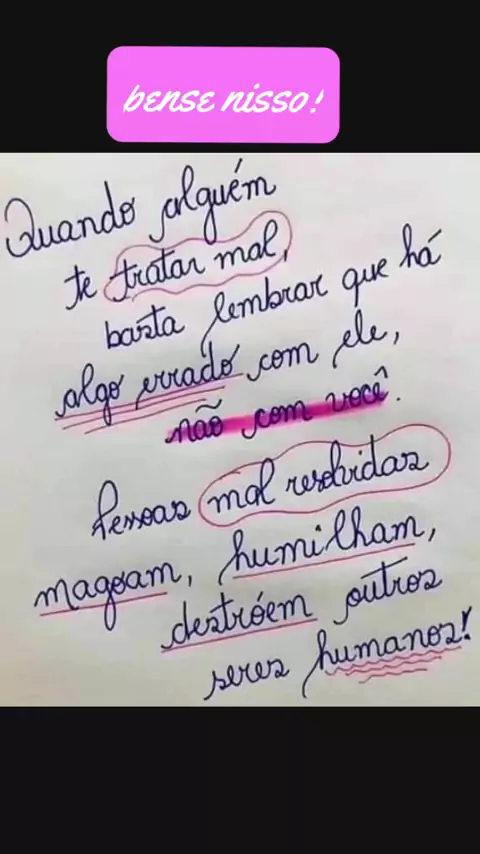 bense nisso!
Quando alguém
te tratar mal,
basta lembrar que há
algo errado com ele,
não com você.
Pessoas mal resolvidas
magoam, humilham,
destróem outros
seres humanos!